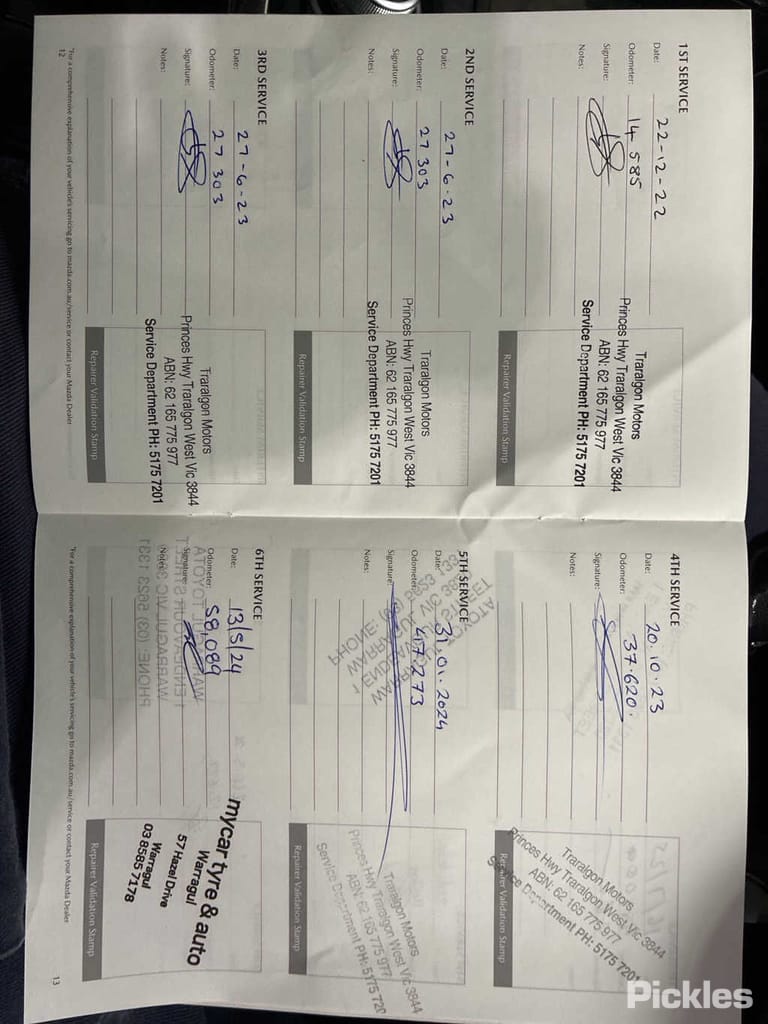 1ST SERVICE
Date: 22-12-22
Odometer: 14 585
Signature:
Notes:
Traralgon Motors
Princes Hwy Traralgon West Vic 3844
ABN: 62 165 775 977
Service Department PH: 5175 7201
Repairer Validation Stamp
2ND SERVICE
Date: 27-6-23
Odometer: 27 303
Signature:
Notes:
Traralgon Motors
Princes Hwy Traralgon West Vic 3844
ABN: 62 165 775 977
Service Department PH: 5175 7201
Repairer Validation Stamp
3RD SERVICE
Date: 27-6-23
Odometer: 27 303
Signature:
Notes:
Traralgon Motors
Princes Hwy Traralgon West Vic 3844
ABN: 62 165 775 977
Service Department PH: 5175 7201
Repairer Validation Stamp
*For a comprehensive explanation of your vehicle's servicing go to mazda.com.au/service or contact your Mazda Dealer
12
4TH SERVICE
Date: 20.10.23
Odometer: 37.620.
Signature:
Notes:
Traralgon Motors
Princes Hwy Traralgon West Vic 3844
ABN: 62 165 775 977
Service Department PH: 5175 7201
Repairer Validation Stamp
5TH SERVICE
Date: 31.01.2024
Odometer: 47.273
Signature:
Notes:
Traralgon Motors
Princes Hwy Traralgon West Vic 3844
ABN: 62 165 775 977
Service Department PH: 5175 720
Repairer Validation Stamp
6TH SERVICE
Date: 13/5/24
Odometer: 58,089
Signature:
Notes:
mycar tyre & auto
Warragul
57 Hazel Drive
Warragul
03 8585 7178
Repairer Validation Stamp
*For a comprehensive explanation of your vehicle's servicing go to mazda.com.au/service or contact your Mazda Dealer
13
Pickles